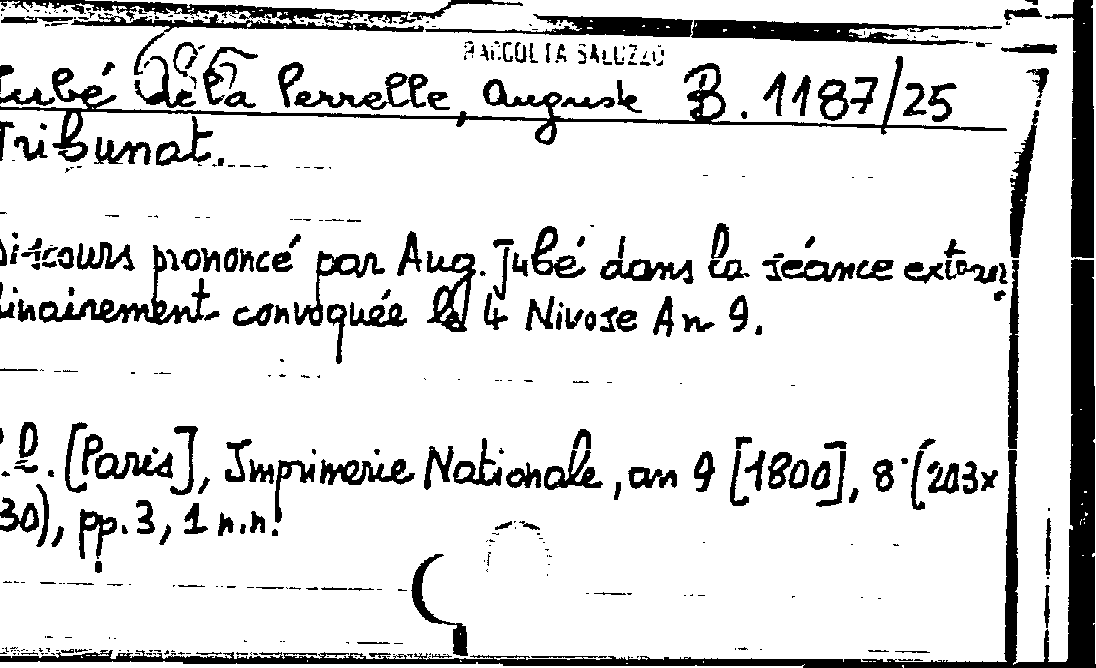 RACCOLTA SALUZZO
Jubé de la Perrelle, Auguste B. 1187/25
Tribunat.
Discours prononcé par Aug. Jubé dans la séance extraor
dinairement convoquée le 4 Nivose An 9.
.l. [Paris], Imprimerie Nationale, an 9 [1800], 8° (203x
30), pp. 3, 1 n.n.